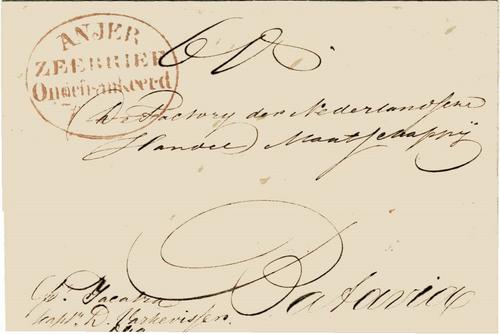 ANJER
ZEEBRIEF
Ongefrankeerd
60.
De Factory der Nederlandsche
Handel Maatschappij
Batavia
p. Jacatra
Kapt. D. Varkevisser.